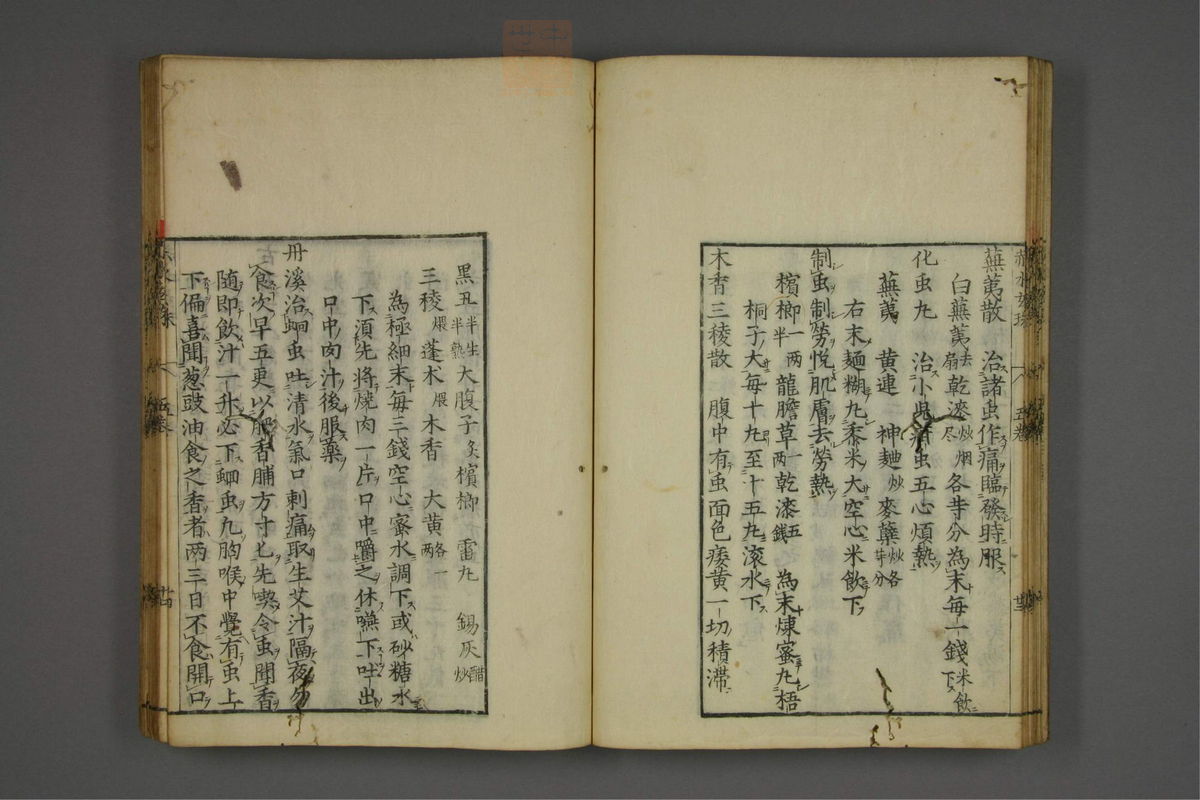 蕪荑散　治諸虫作痛臨發時服
白蕪荑去扇乾漆炒烟尽各等分為末每一錢米飲下
化虫丸　治小児虫五心煩熱
蕪荑　黄連　神麯炒　麥蘗炒各等分
右末麺糊丸黍米大空心米飲下
制虫制勞悦肌膚去勞熱
檳榔一两半龍膽草一两乾漆五錢　為末煉蜜丸梧
桐子大每十丸至十五丸滚水下
木香三稜散　腹中有虫面色痿黄一切積滞
黒丑半生半熟大腹子炙檳榔　雷丸　錫灰醋炒
三稜煨蓬朮煨　木香　大黄各一两
為極細末每三錢空心蜜水調下或砂糖水
下須先将焼肉一片口中嚼之休嚥下吐出
口中肉汁後服薬
丹溪治蛔虫吐清水氣口刺痛取生艾汁隔夜勿
食次早五更以肥香脯方寸匕先喫令虫聞香
随即飲汁一升必下蛔虫丸胸喉中覺有虫上
下偏喜聞葱豉油食之香者两三日不食開口